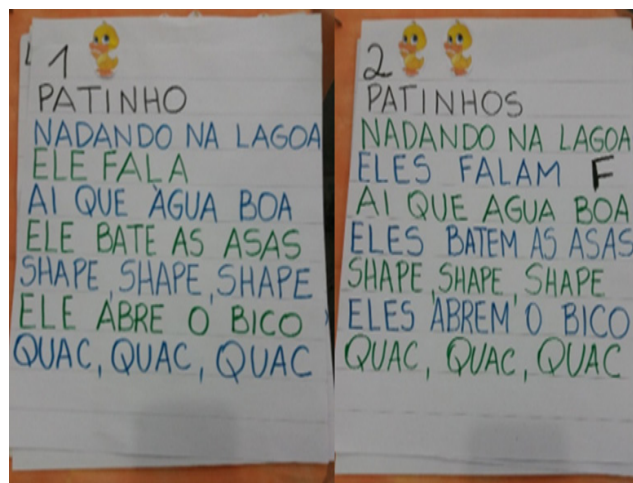 1
PATINHO
NADANDO NA LAGOA
ELE FALA
AI QUE ÀGUA BOA
ELE BATE AS ASAS
SHAPE, SHAPE, SHAPE
ELE ABRE O BICO
QUAC, QUAC, QUAC
2
PATINHOS
NADANDO NA LAGOA
ELES FALAM F
AI QUE AGUA BOA
ELES BATEM AS ASAS
SHAPE, SHAPE, SHAPE
ELES ABREM O BICO
QUAC, QUAC, QUAC